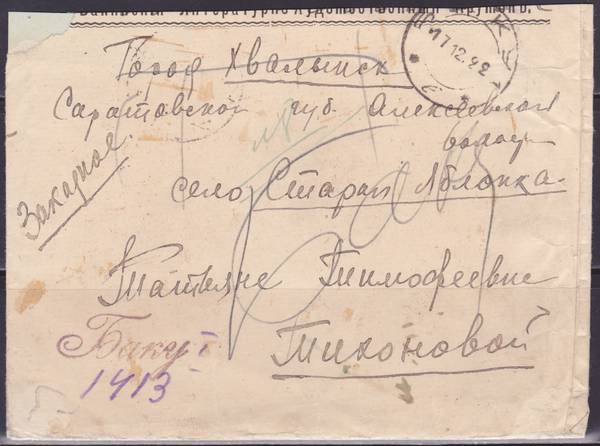 Бакинский Литературно-Художественный Кружокъ.
17.12.22
Город Хвалынск
Саратовской губ Алексеевской
волос
село Старая Яблонка.
Заказное.
Татьяне Тимофеевне
Тихоновой
Баку
1413